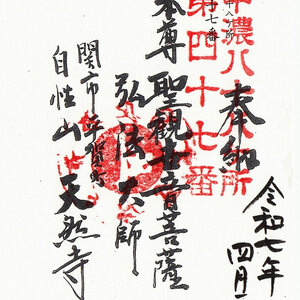 令和七年
四月
奉納
美濃八十八ヶ所
第四十七番
本尊 聖観世音菩薩
弘法大師
関市
自性山 天然寺